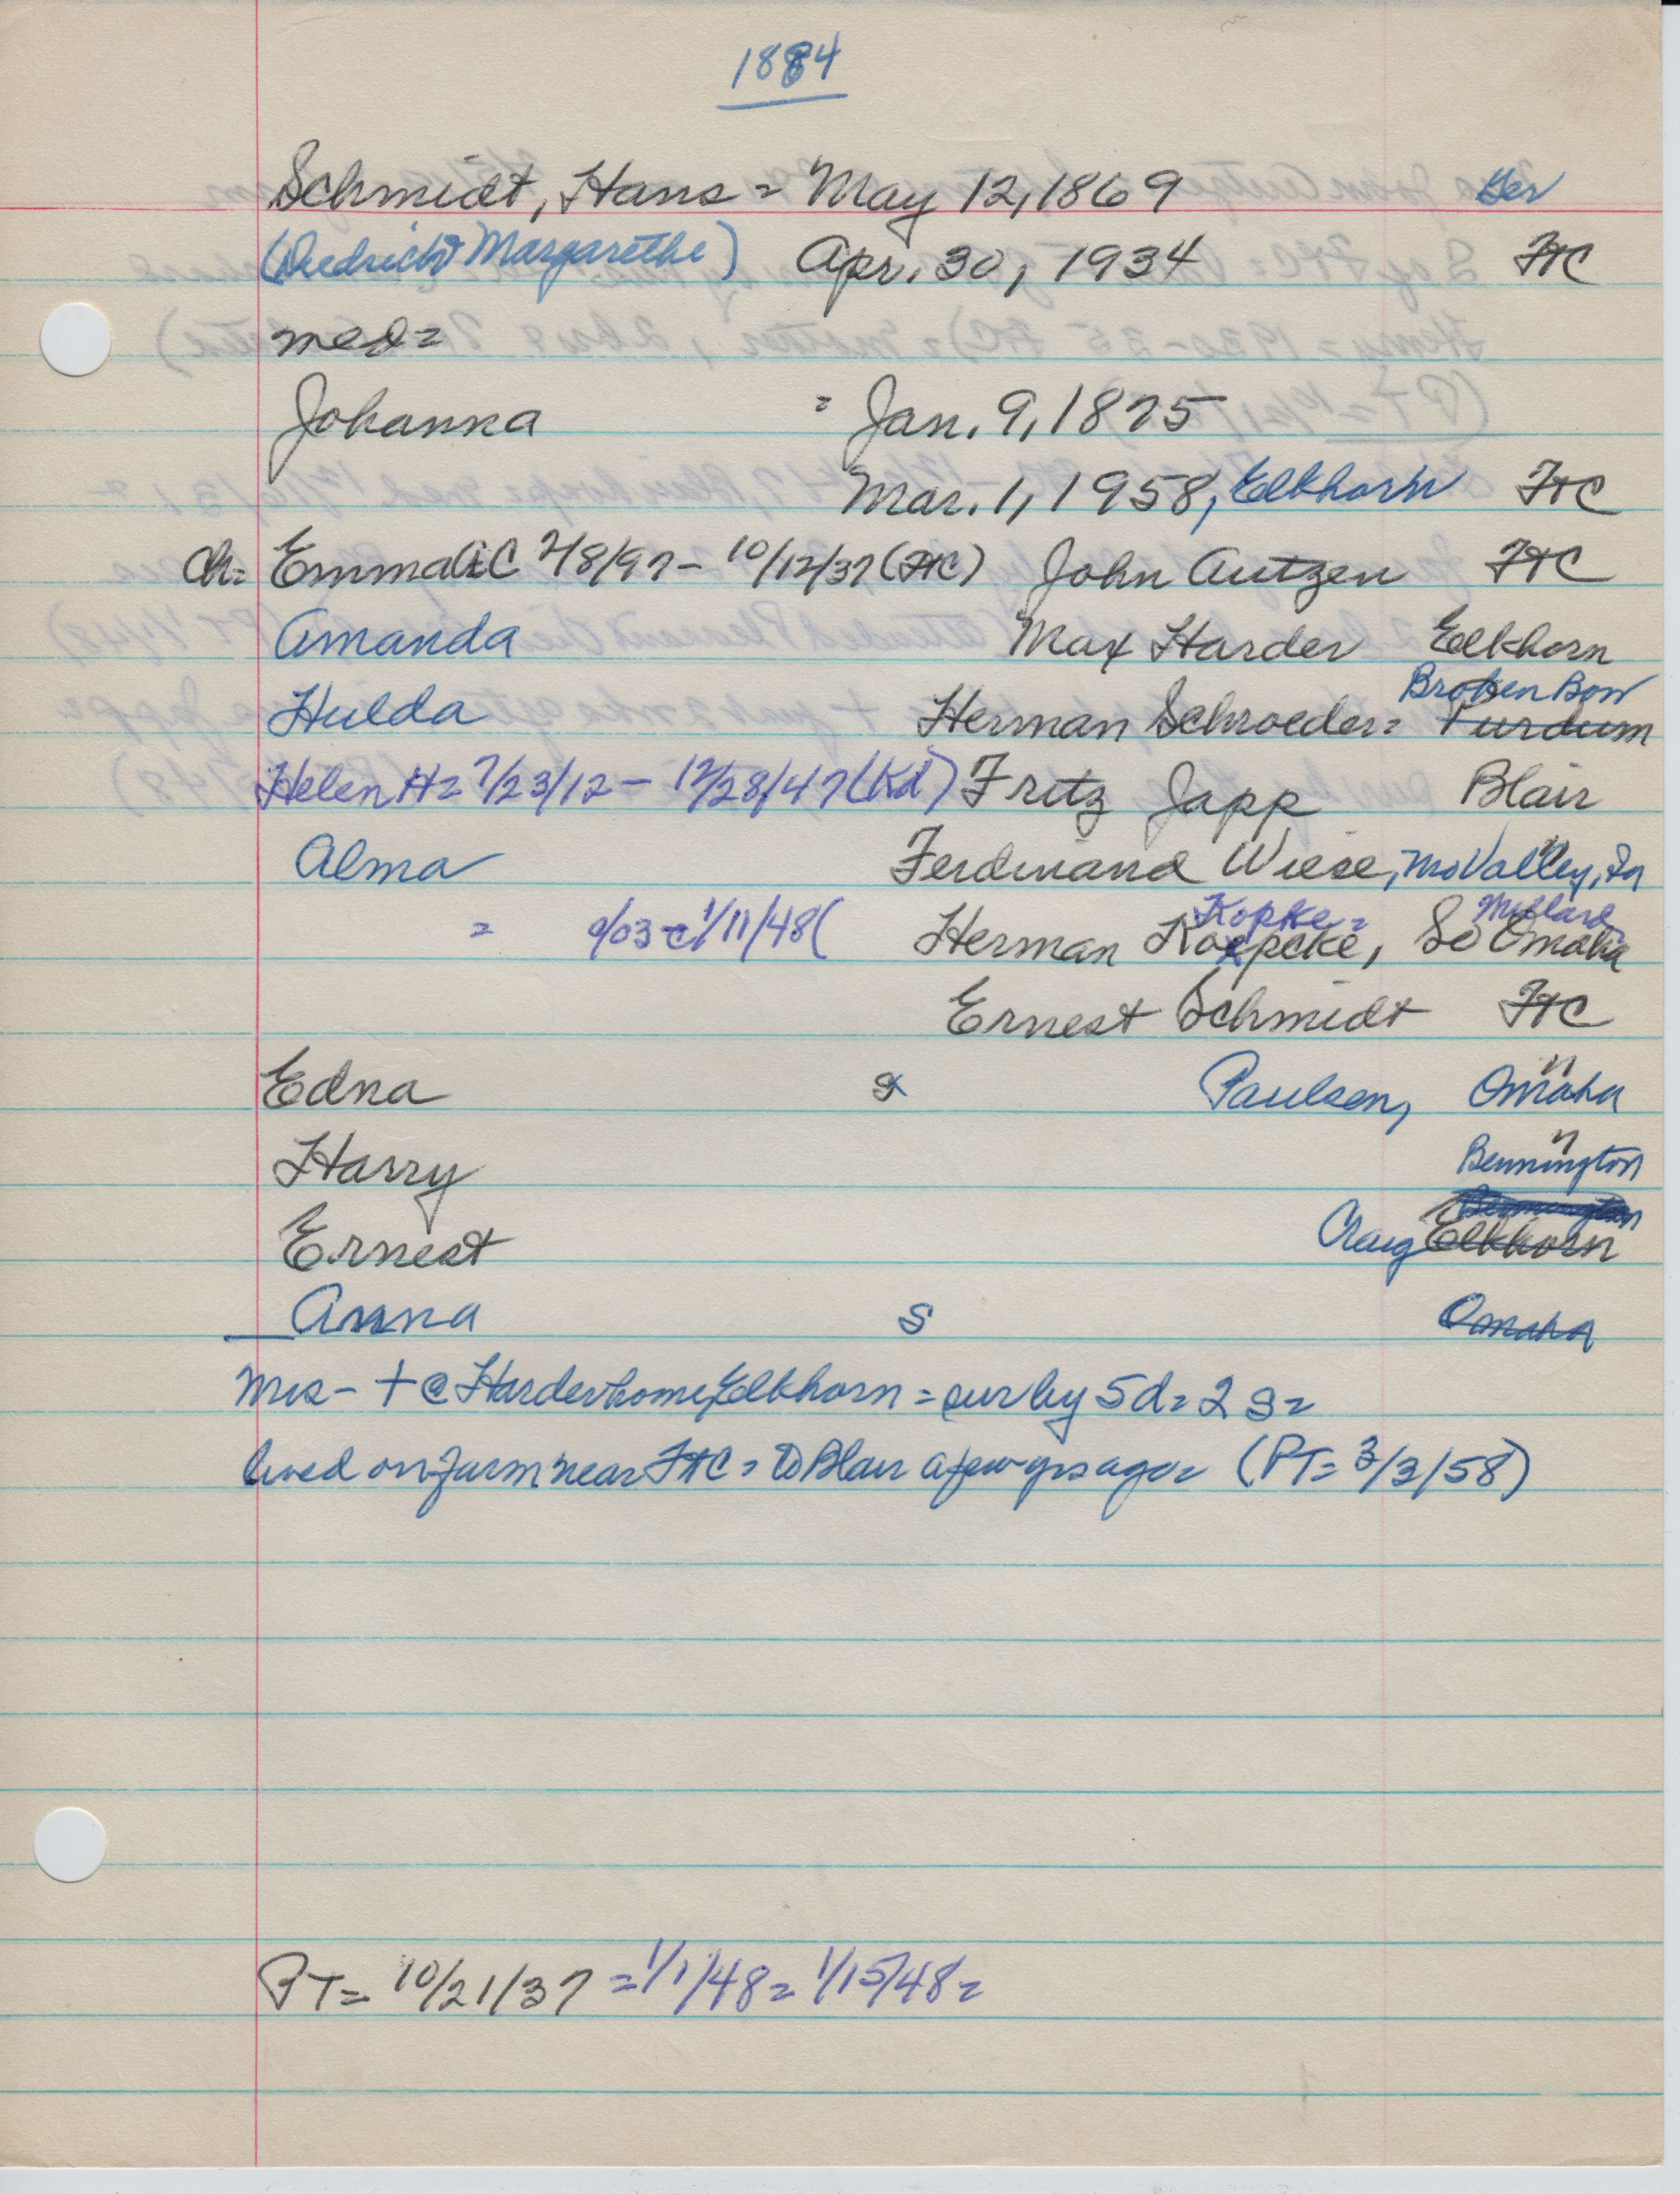 1884
Schmidt, Hans = May 12, 1869 Ger
(Diedrich & Margarethe) Apr. 30, 1934 FtC
med=
Johanna = Jan. 9, 1875
Mar. 1, 1958, Elkhorn FtC
Ch= Emma AC 2/8/97 - 10/12/37 (FtC) John Autzen FtC
Amanda Max Harder Elkhorn
Broken Bow
Hulda Herman Schroeder = Purdum
Helen H = 7/23/12 - 12/28/47 (Kd) Fritz Japp Blair
Alma Ferdinand Wiese, Mo Valley, Ia
Kopke = Millard
= 9/03 - 1/11/48 ( Herman Koepcke, So Omaha
Ernest Schmidt FtC
Edna x Paulsen, Omaha
Harry Bennington
Bennington
Ernest Craig Elkhorn
Anna S Omaha
Mrs - + @ Harder home, Elkhorn = sur by 5d = 2 s =
lived on farm near FtC = to Blair a few yrs ago = (PT = 3/3/58)
PT = 10/21/37 = 1/1/48 = 1/15/48 =